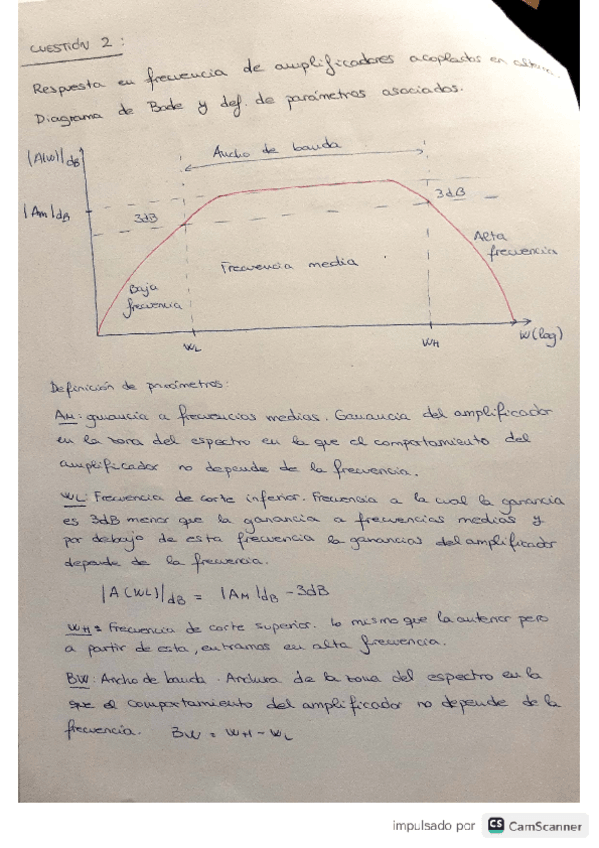 CUESTIÓN 2 :
Respuesta en frecuencia de amplificadores acoplados en
Diagrama de Bode y def. de parámetros asociados.
|A(w)|dB
Ancho de banda
|Am|dB
3dB
3dB
Alta
frecuencia
Frecuencia media
Baja
frecuencia
WL
WH
W(log)
Definición de parámetros:
AM: ganancia a frecuencias medias. Ganancia del amplificador
en la zona del espectro en la que el comportamiento del
amplificador no depende de la frecuencia.
WL: Frecuencia de corte inferior. Frecuencia a la cual la ganancia
es 3dB menor que la ganancia a frecuencias medias y
por debajo de esta frecuencia la ganancias del amplificador
depende de la frecuencia.
|A(WL)|dB = |AM|dB - 3dB
WH = Frecuencia de corte superior. Lo mismo que la anterior pero
a partir de esta, entramos en alta frecuencia.
BW: Ancho de banda. Anchura de la zona del espectro en la
que el comportamiento del amplificador no depende de la
frecuencia. BW = WH - WL
impulsado por CS CamScanner